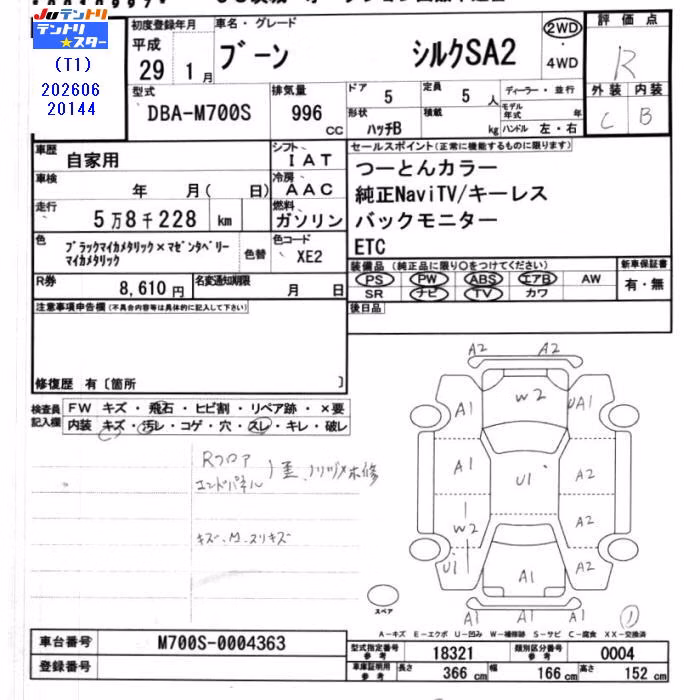 JUテントリ
テントリ★スター
(T1)
202606
20144
初度登録年月
平成
29 1月
車名・グレード
ブーン シルクSA2
2WD
・
4WD
評価点
R
外装 内装
C B
型式
DBA-M700S
排気量
996
CC
ドア
5
定員
5 人
形状
ハッチB
積載
kg
ディーラー・並行
モデル年式 年
ハンドル 左・右
車歴
自家用
シフト
IAT
車検
年 月( 日)
冷房
AAC
走行
5万8千228 km
燃料
ガソリン
色
ブラックマイカメタリック×マゼンタベリー
マイカメタリック
色替
色コード
XE2
R券
8,610 円
名変通知期限
月 日
セールスポイント(正常に機能するものに限ります)
つーとんカラー
純正NaviTV/キーレス
バックモニター
ETC
装備品(純正品に限り○をつけてください)
新車保証書
PS PW ABS エアB AW
SR ナビ TV カワ
有・無
後日品
注意事項申告欄(不具合内容等は具体的に記入して下さい)
修復歴 有〔箇所 〕
検査員
記入欄
FW キズ・飛石・ヒビ割・リペア跡・×要
内装 キズ・汚レ・コゲ・穴・スレ・キレ・破レ
Rフロア
エンドパネル
キズ、M、スリキズ
A2 A2
A1 W2 UA1
A1 U1 A2
W2 A2
U1 A1 A2
A1 A1 A1
スペア
①
A-キズ E-エクボ U-凹み W-補修跡 S-サビ C-腐食 XX-交換済
車台番号
M700S-0004363
登録番号
型式指定番号
参考
18321
類別区分番号
参考
0004
車庫証明用
参考
長さ 366 cm 幅 166 cm 高さ 152 cm